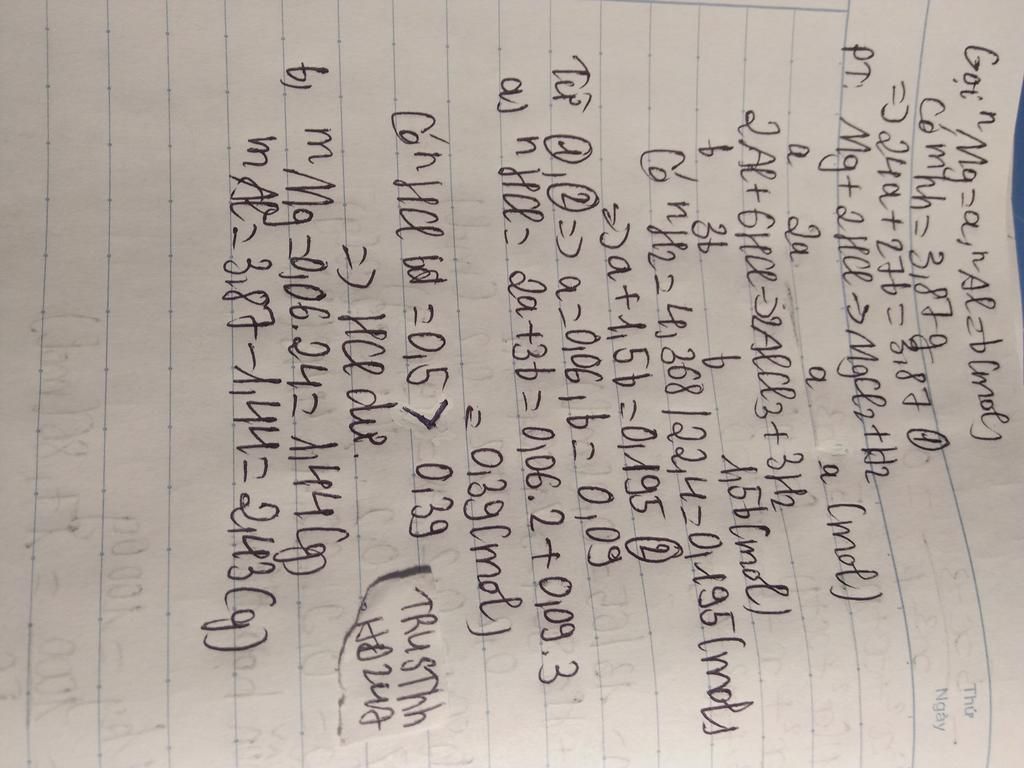 Thứ
Ngày
Gọi nMg = a, nAl = b(mol)
Có mhh = 3,87g
=> 24a + 27b = 3,87 ①
PT: Mg + 2HCl -> MgCl2 + H2
a 2a a a (mol)
2Al + 6HCl -> 2AlCl3 + 3H2
b 3b b 1,5b(mol)
Có nH2 = 4,368/22,4 = 0,195(mol)
=> a + 1,5b = 0,195 ②
Từ ①,② => a = 0,06, b = 0,09
a) nHCl = 2a + 3b = 0,06.2 + 0,09.3
= 0,39(mol)
Có nHCl bđ = 0,5 > 0,39
=> HCl dư.
b, mMg = 0,06.24 = 1,44(g)
mAl = 3,87 - 1,44 = 2,43(g)